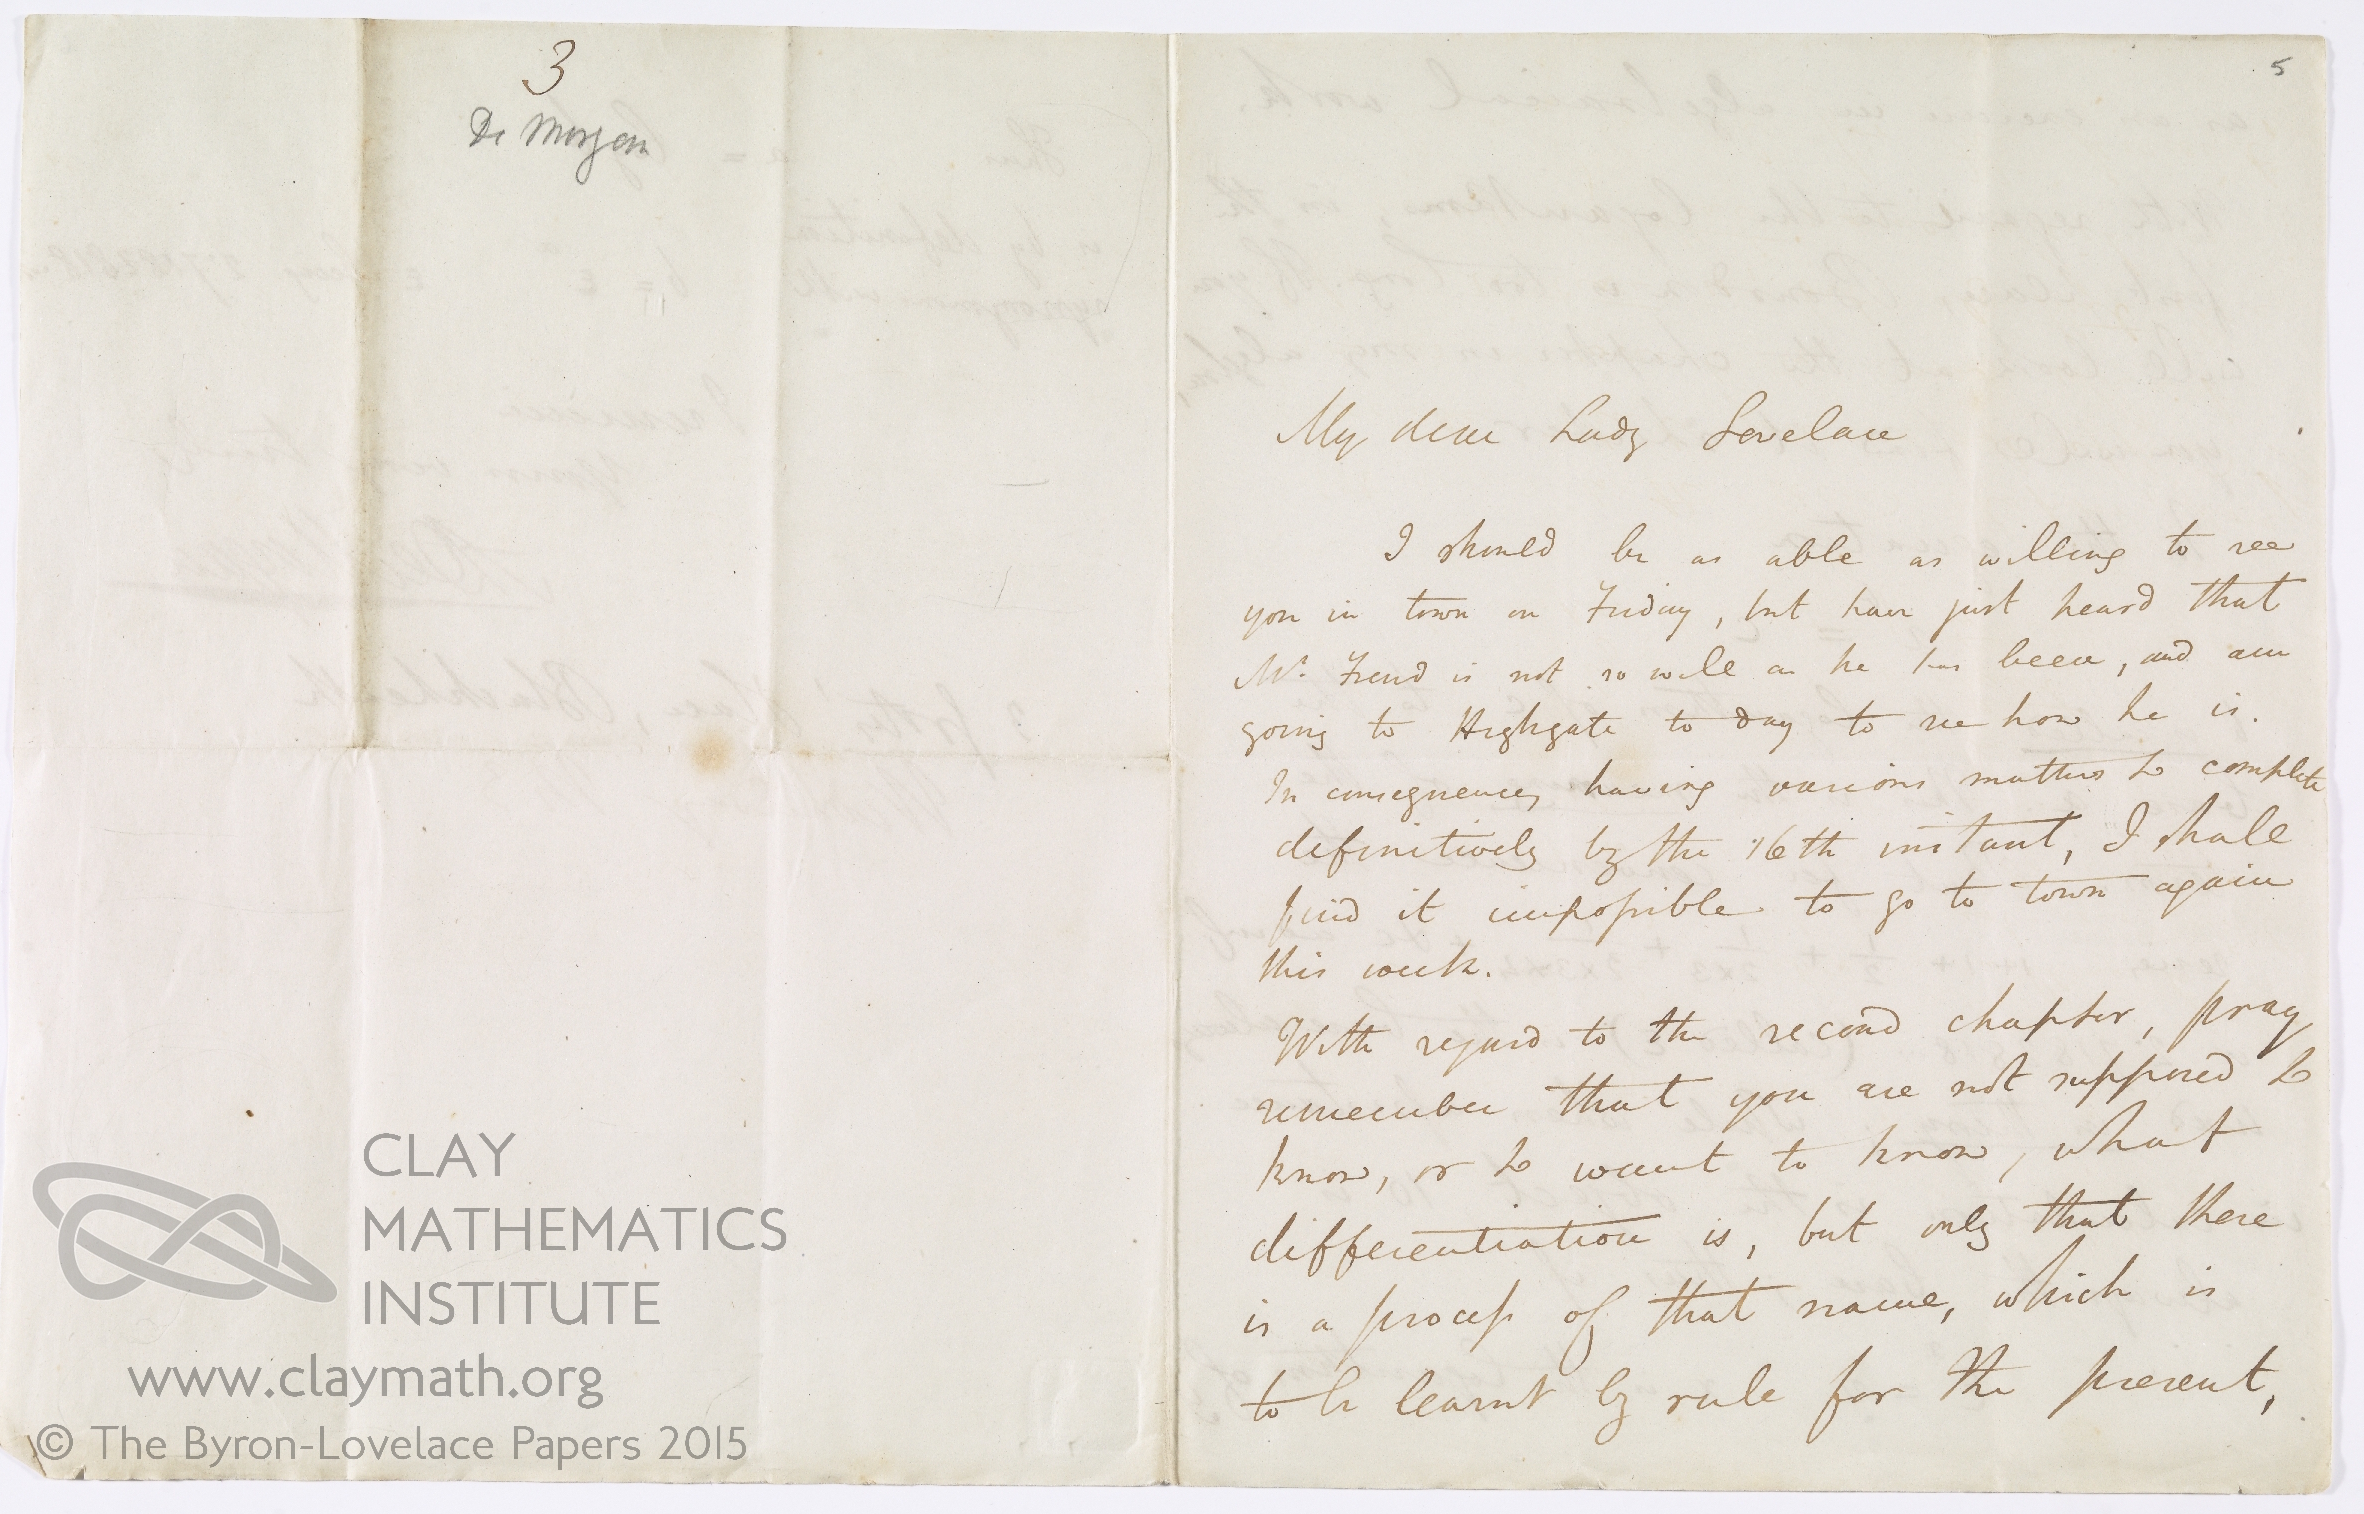 3
De Morgan
5
My dear Lady Lovelace
I should be as able as willing to see
you in town on Friday, but have just heard that
Mr. Frend is not so well as he has been, and am
going to Highgate to day to see how he is.
In consequence, having various matters to complete
definitively by the 16th instant, I shall
find it impossible to go to town again
this week.
With regard to the second chapter, pray
remember that you are not supposed to
know, or to want to know, what
differentiation is, but only that there
is a process of that name, which is
to be learnt by rule for the present,
CLAY
MATHEMATICS
INSTITUTE
www.claymath.org
© The Byron-Lovelace Papers 2015